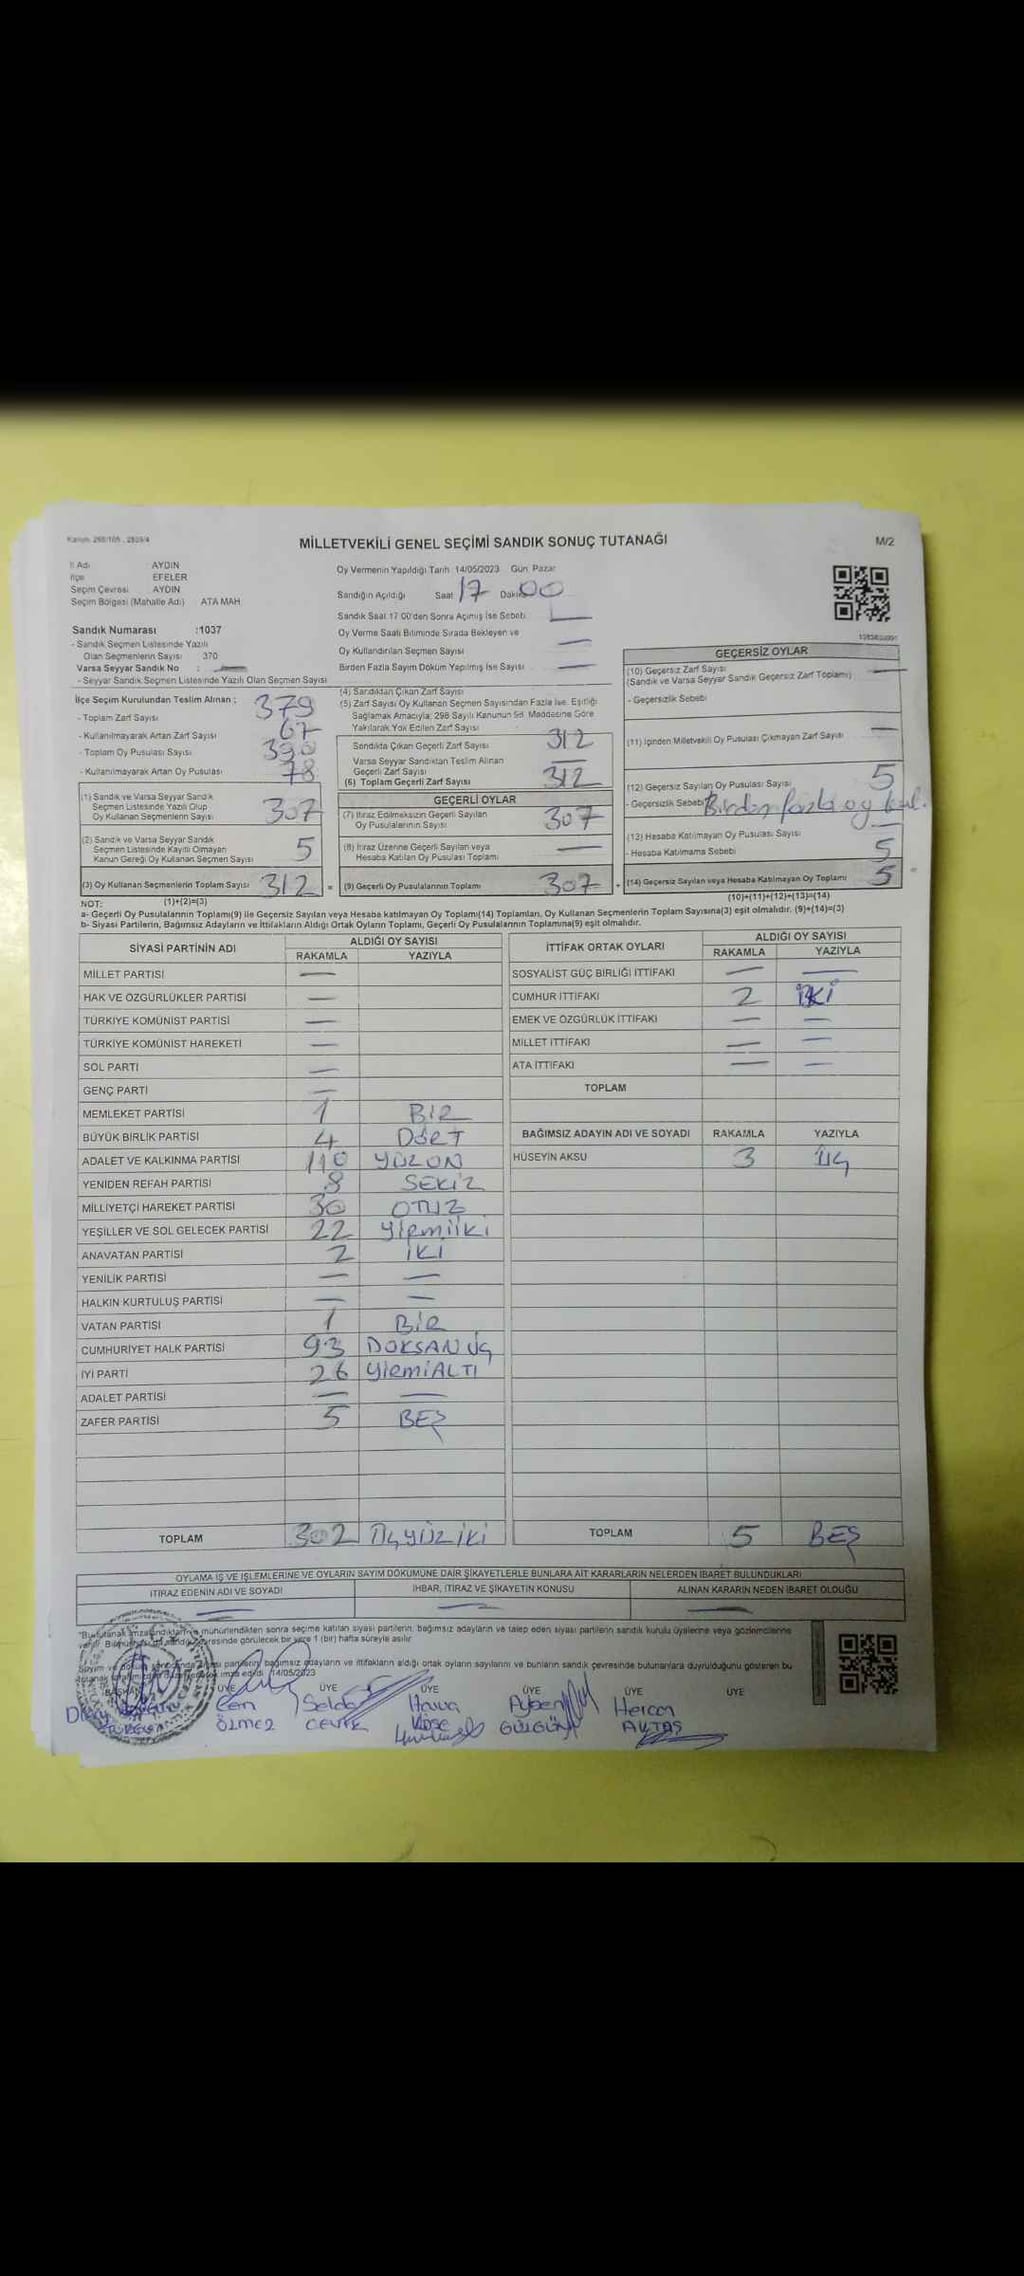 Kanun: 298/105 , 2839/4
MİLLETVEKİLİ GENEL SEÇİMİ SANDIK SONUÇ TUTANAĞI
M/2
İl Adı : AYDIN
İlçe : EFELER
Seçim Çevresi : AYDIN
Seçim Bölgesi (Mahalle Adı) ATA MAH.
Oy Vermenin Yapıldığı Tarih 14/05/2023 Gün: Pazar
Sandığın Açıldığı Saat 17 Dakika 00
Sandık Saat 17:00'den Sonra Açılmış İse Sebebi
Oy Verme Saati Bitiminde Sırada Bekleyen ve
Oy Kullandırılan Seçmen Sayısı —
Birden Fazla Sayım Döküm Yapılmış İse Sayısı —
Sandık Numarası :1037
- Sandık Seçmen Listesinde Yazılı
Olan Seçmenlerin Sayısı 370
Varsa Seyyar Sandık No : —
- Seyyar Sandık Seçmen Listesinde Yazılı Olan Seçmen Sayısı
İlçe Seçim Kurulundan Teslim Alınan ;
- Toplam Zarf Sayısı 379
- Kullanılmayarak Artan Zarf Sayısı 67
- Toplam Oy Pusulası Sayısı 390
- Kullanılmayarak Artan Oy Pusulası 78
(1) Sandık ve Varsa Seyyar Sandık
Seçmen Listesinde Yazılı Olup
Oy Kullanan Seçmenlerin Sayısı 307
(2) Sandık ve Varsa Seyyar Sandık
Seçmen Listesinde Kayıtlı Olmayan
Kanun Gereği Oy Kullanan Seçmen Sayısı 5
(3) Oy Kullanan Seçmenlerin Toplam Sayısı 312 =
(4) Sandıktan Çıkan Zarf Sayısı
(5) Zarf Sayısı Oy Kullanan Seçmen Sayısından Fazla İse, Eşitliği
Sağlamak Amacıyla; 298 Sayılı Kanunun 98. Maddesine Göre
Yakılarak Yok Edilen Zarf Sayısı
Sandıkta Çıkan Geçerli Zarf Sayısı 312
Varsa Seyyar Sandıktan Teslim Alınan
Geçerli Zarf Sayısı —
(6) Toplam Geçerli Zarf Sayısı 312
GEÇERLİ OYLAR
(7) İtiraz Edilmeksizin Geçerli Sayılan
Oy Pusulalarının Sayısı 307
(8) İtiraz Üzerine Geçerli Sayılan veya
Hesaba Katılan Oy Pusulası Toplamı —
(9) Geçerli Oy Pusulalarının Toplamı 307 +
GEÇERSİZ OYLAR
(10) Geçersiz Zarf Sayısı
(Sandık ve Varsa Seyyar Sandık Geçersiz Zarf Toplamı) —
- Geçersizlik Sebebi
(11) İçinden Milletvekili Oy Pusulası Çıkmayan Zarf Sayısı —
(12) Geçersiz Sayılan Oy Pusulası Sayısı 5
- Geçersizlik Sebebi Birden fazla oy kul.
(13) Hesaba Katılmayan Oy Pusulası Sayısı —
- Hesaba Katılmama Sebebi 5
(14) Geçersiz Sayılan veya Hesaba Katılmayan Oy Toplamı 5
NOT: (1)+(2)=(3)
(10)+(11)+(12)+(13)=(14)
a- Geçerli Oy Pusulalarının Toplamı(9) ile Geçersiz Sayılan veya Hesaba katılmayan Oy Toplamı(14) Toplamları, Oy Kullanan Seçmenlerin Toplam Sayısına(3) eşit olmalıdır. (9)+(14)=(3)
b- Siyasi Partilerin, Bağımsız Adayların ve İttifakların Aldığı Ortak Oyların Toplamı, Geçerli Oy Pusulalarının Toplamına(9) eşit olmalıdır.
SİYASİ PARTİNİN ADI ALDIĞI OY SAYISI
RAKAMLA YAZIYLA
MİLLET PARTİSİ —
HAK VE ÖZGÜRLÜKLER PARTİSİ —
TÜRKİYE KOMÜNİST PARTİSİ —
TÜRKİYE KOMÜNİST HAREKETİ —
SOL PARTİ —
GENÇ PARTİ —
MEMLEKET PARTİSİ 1 BİR
BÜYÜK BİRLİK PARTİSİ 4 DÖRT
ADALET VE KALKINMA PARTİSİ 110 YÜZON
YENİDEN REFAH PARTİSİ 8 SEKİZ
MİLLİYETÇİ HAREKET PARTİSİ 30 OTUZ
YEŞİLLER VE SOL GELECEK PARTİSİ 22 Yirmiiki
ANAVATAN PARTİSİ 2 İKİ
YENİLİK PARTİSİ — —
HALKIN KURTULUŞ PARTİSİ — —
VATAN PARTİSİ 1 BİR
CUMHURİYET HALK PARTİSİ 93 DOKSAN ÜÇ
İYİ PARTİ 26 YirmiALTI
ADALET PARTİSİ — —
ZAFER PARTİSİ 5 BEŞ
TOPLAM 302 ÜÇYÜZ İKİ
İTTİFAK ORTAK OYLARI ALDIĞI OY SAYISI
RAKAMLA YAZIYLA
SOSYALİST GÜÇ BİRLİĞİ İTTİFAKI — —
CUMHUR İTTİFAKI 2 İKİ
EMEK VE ÖZGÜRLÜK İTTİFAKI — —
MİLLET İTTİFAKI — —
ATA İTTİFAKI — —
TOPLAM
BAĞIMSIZ ADAYIN ADI VE SOYADI RAKAMLA YAZIYLA
HÜSEYİN AKSU 3 ÜÇ
TOPLAM 5 BEŞ
OYLAMA İŞ VE İŞLEMLERİNE VE OYLARIN SAYIM DÖKÜMÜNE DAİR ŞİKAYETLERLE BUNLARA AİT KARARLARIN NELERDEN İBARET BULUNDUKLARI
İTİRAZ EDENİN ADI VE SOYADI İHBAR, İTİRAZ VE ŞİKAYETİN KONUSU ALINAN KARARIN NEDEN İBARET OLDUĞU
— — —
mühürlendikten sonra seçime katılan siyasi partilerin, bağımsız adayların ve talep eden siyasi partilerin sandık kurulu üyelerine veya gözlemcilerine
çevresinde görülecek bir yere 1 (bir) hafta süreyle asılır.
bağımsız adayların ve ittifakların aldığı ortak oyların sayılarını ve bunların sandık çevresinde bulunanlara duyrulduğunu gösteren bu
imza edildi. 14/05/2023
BAŞKAN ÜYE ÜYE ÜYE ÜYE ÜYE ÜYE
Selda Hava Aysen Hercan
CEVİK Köse GÜLGÜN AKTAŞ